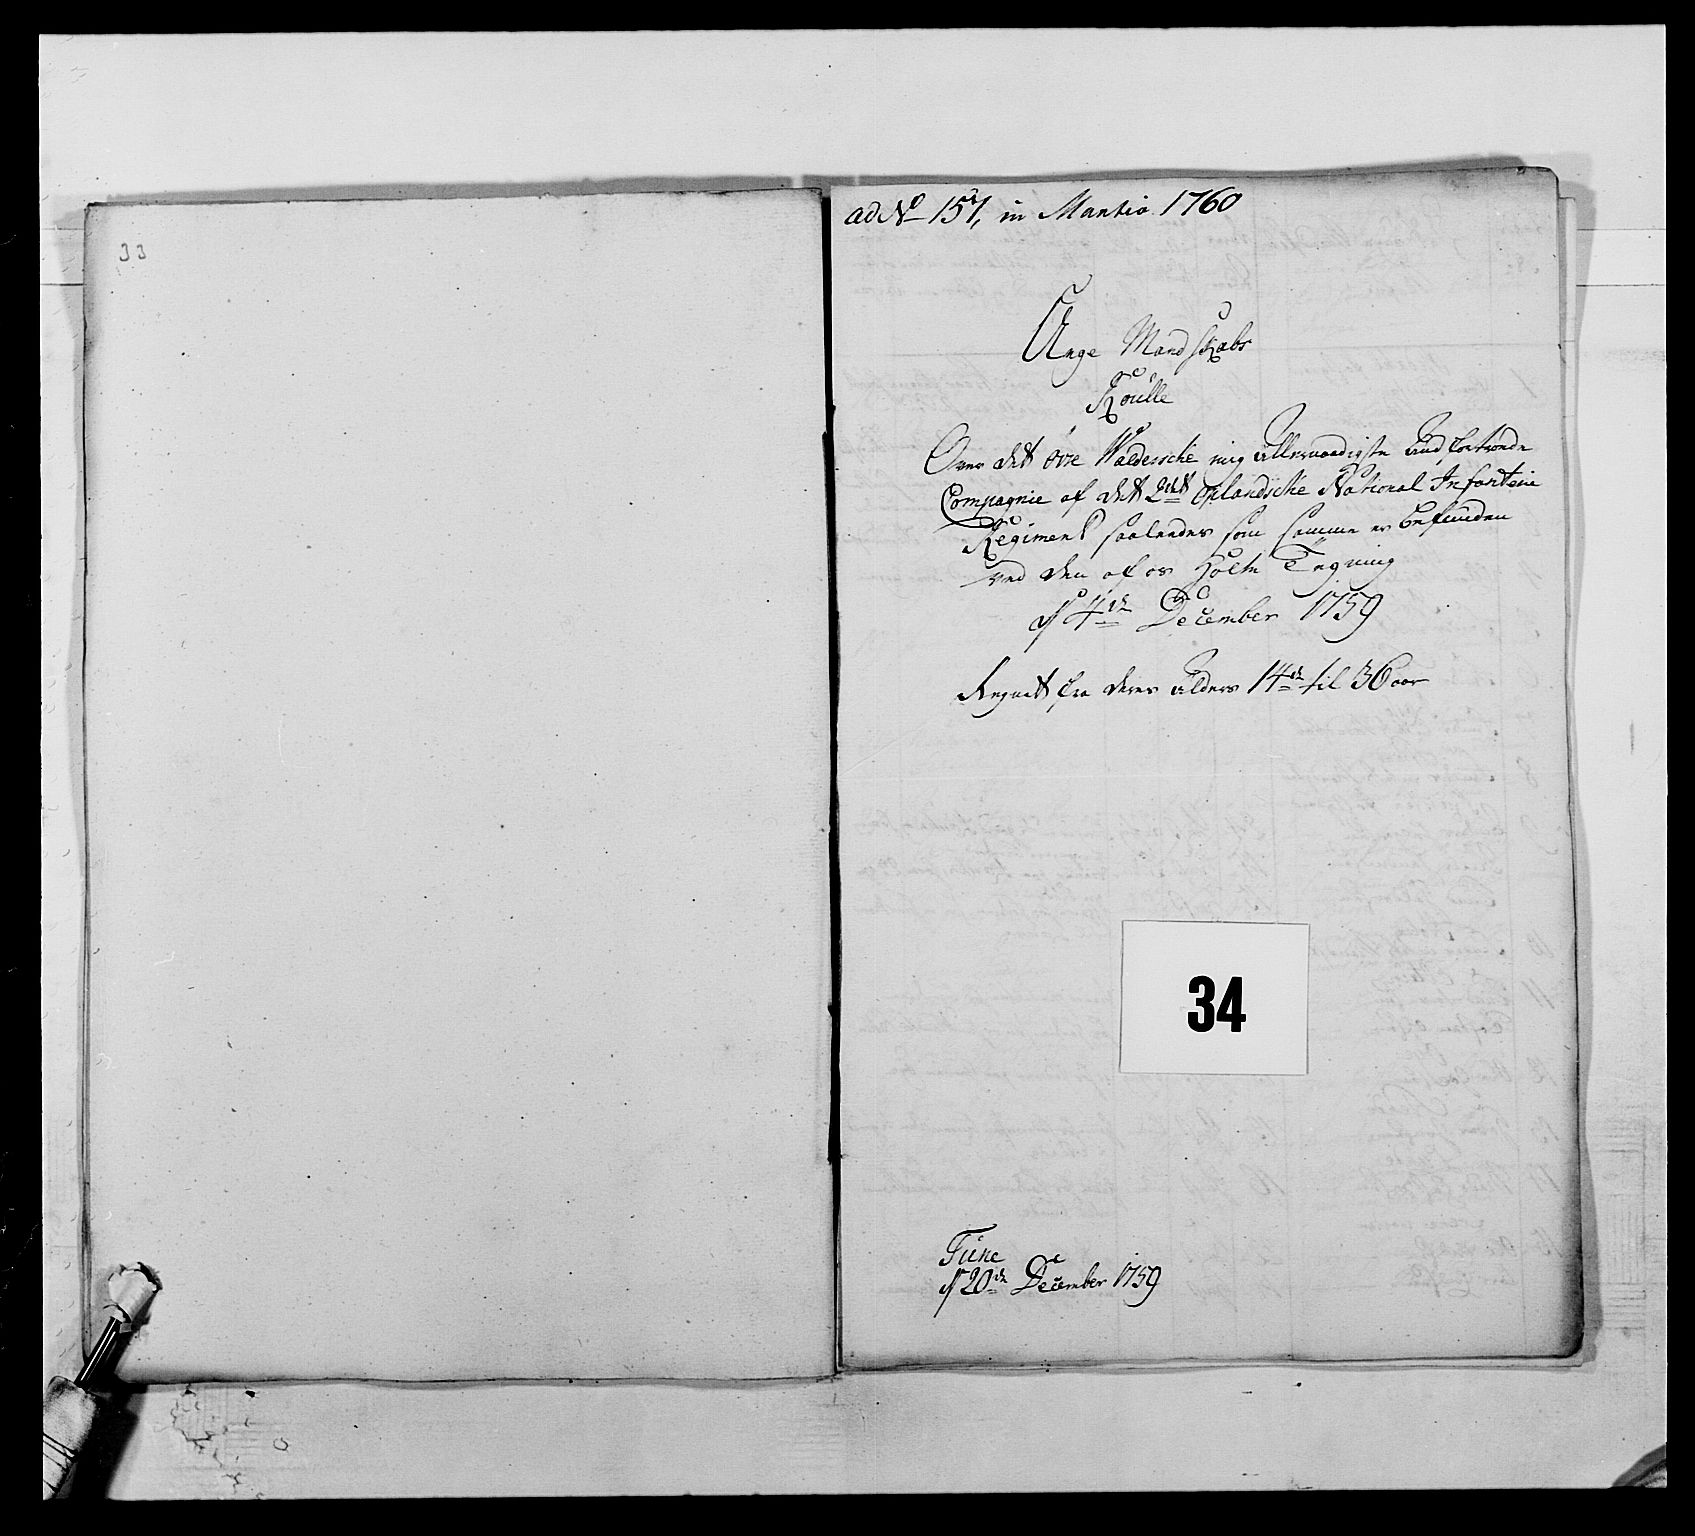 33
ad No 151, in Martio 1760
Unge Mandskabs
Roulle
Over det övre Waldersche mig allernaadigst andfortroede
Compagnie af det 2det Oplandsche National Infanterie
Regiment saaledes som samme er befunden
ved den af os holte Tegning
d 4de December 1759
Regnet fra deres alders 14de til 36 aar
34
d 20de December 1759